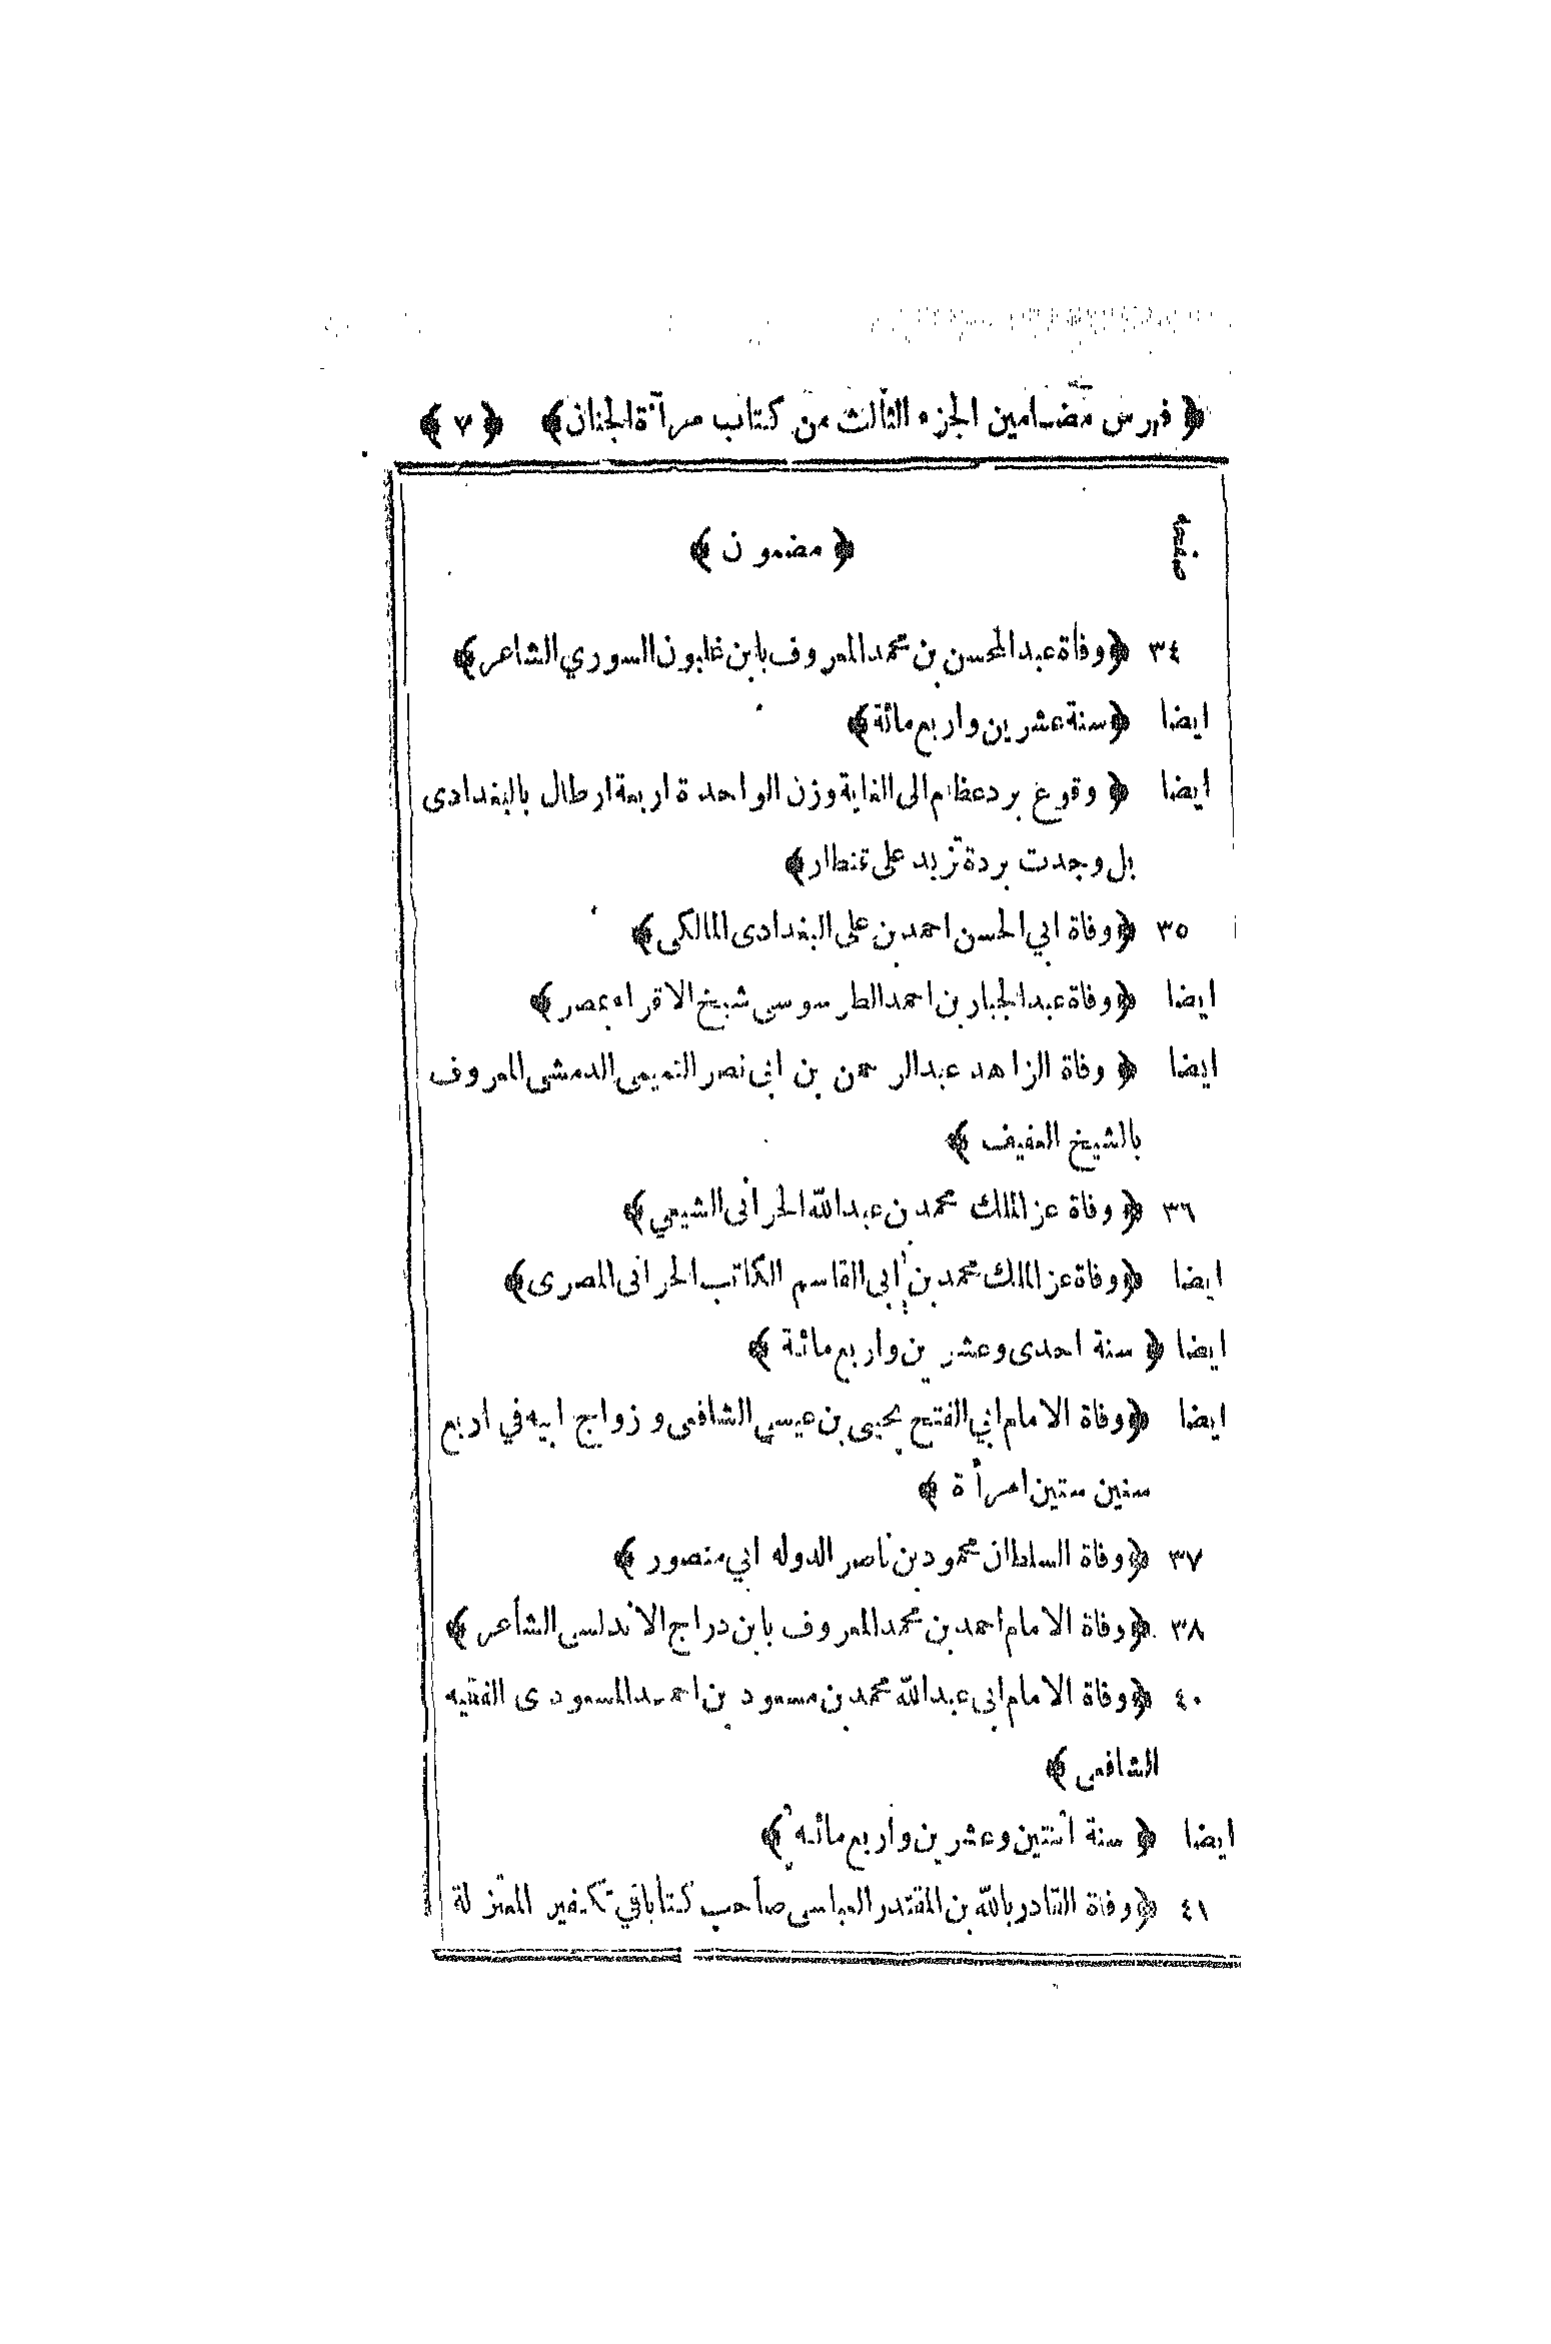 ﴿ فهرس مضامين الجزء الثالث من كتاب مرآة الجنان ﴾ ﴿ ٧ ﴾
صفحه ﴿ مضمون ﴾
٣٤ ﴿ وفاة عبد المحسن بن محمد المعروف بابن غلبون السوري الشاعر ﴾
ايضا ﴿ سنة عشرين واربع مائة ﴾
ايضا ﴿ وقوع برد عظام الى الغاية وزن الواحدة اربعة ارطال بالبغدادى
بل وجدت بردة تزيد على قنطار ﴾
٣٥ ﴿ وفاة ابي الحسن احمد بن على البغدادى المالكى ﴾
ايضا ﴿ وفاة عبد الجبار بن احمد الطرسوسى شيخ الاقراء بمصر ﴾
ايضا ﴿ وفاة الزاهد عبد الرحمن بن ابى نصر التميمى الدمشقى المعروف
بالشيخ العفيف ﴾
٣٦ ﴿ وفاة عز الملك محمد بن عبد الله الحرانى الشيعي ﴾
ايضا ﴿ وفاة عز الملك محمد بن ابى القاسم الكاتب الحرانى المصرى ﴾
ايضا ﴿ سنة احدى وعشرين واربع مائة ﴾
ايضا ﴿ وفاة الامام ابي الفتح يحيى بن عيسى الشافعى و زواج ابيه في اربع
سنين ستين امرأة ﴾
٣٧ ﴿ وفاة السلطان محمود بن ناصر الدوله ابي منصور ﴾
٣٨ ﴿ وفاة الامام احمد بن محمد المعروف بابن دراج الاندلسى الشاعر ﴾
٤٠ ﴿ وفاة الامام ابى عبد الله محمد بن مسعود بن احمد المسعودى الفقيه
الشافعى ﴾
ايضا ﴿ سنة اثنتين وعشرين واربع مائه ﴾
٤١ ﴿ وفاة القادر بالله بن المقتدر العباسى صاحب كتابا في تكفير المعتزلة